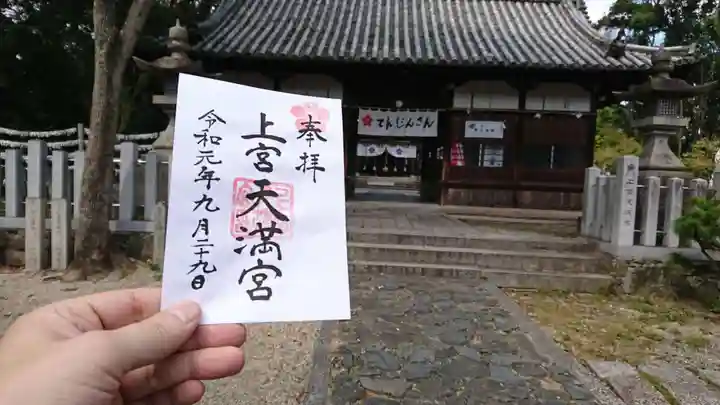 奉拝
上宮天満宮
令和元年九月二十九日
てんじんさん